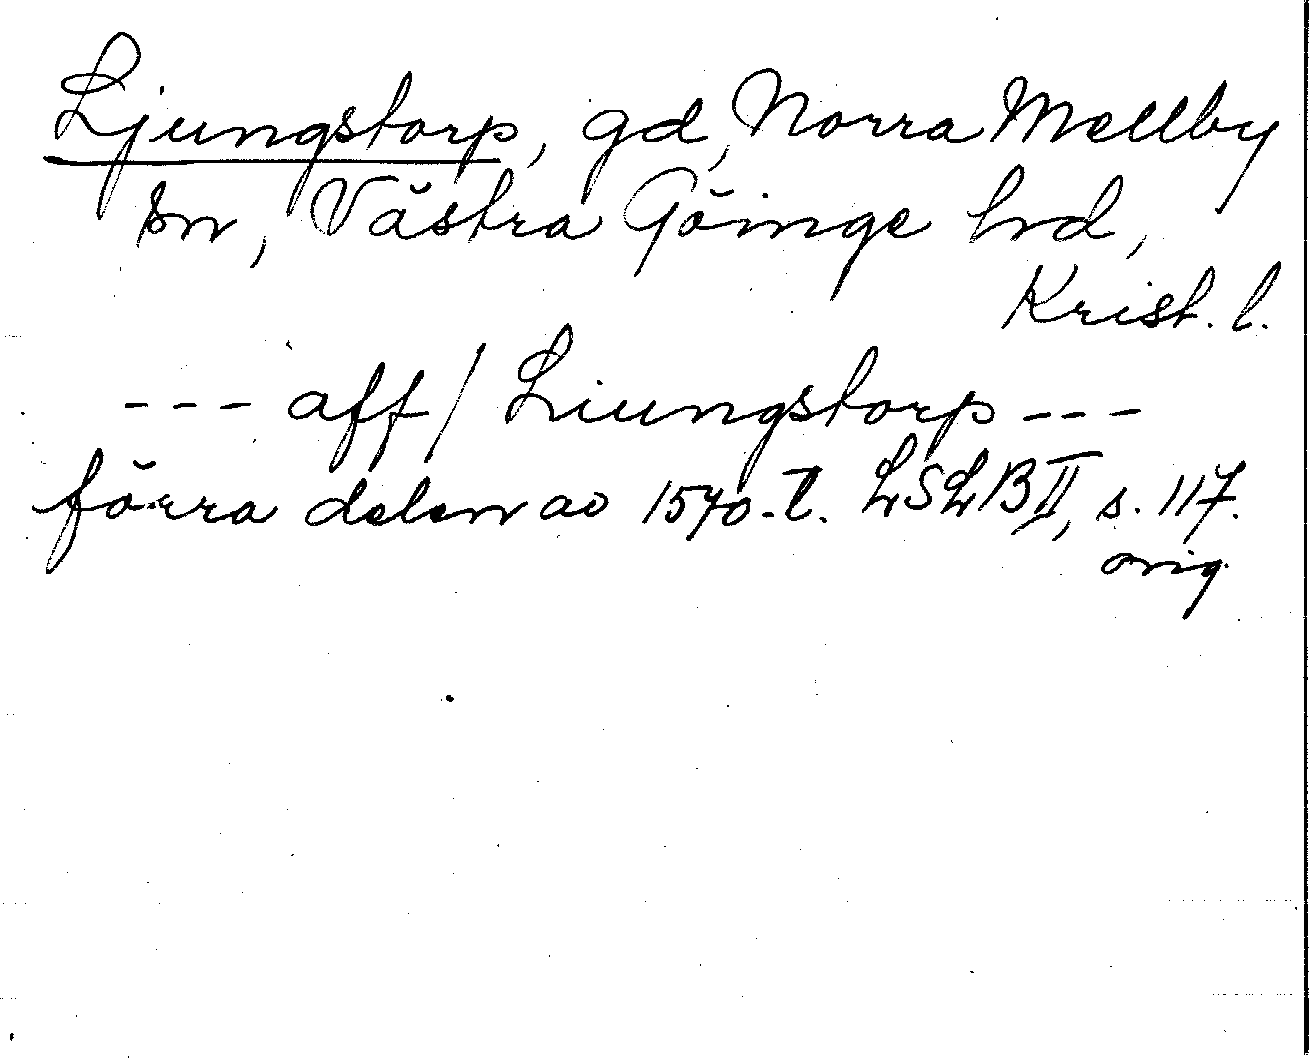 Ljungstorp, gd, Norra Mellby
sn, Västra Göinge hd,
Krist. l.
--- aff / Liungstorp ---
förra delen av 1570-t. LSLB II, s. 117.
orig.